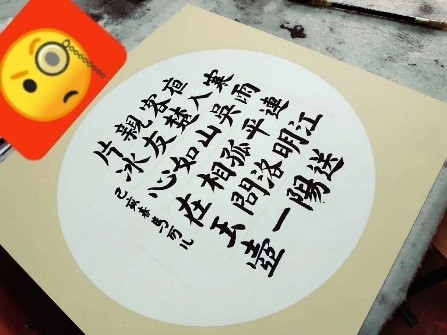 寒雨連江
夜入吳平明送
客楚山孤洛陽
親友如相問一
片冰心在玉壺
己亥春